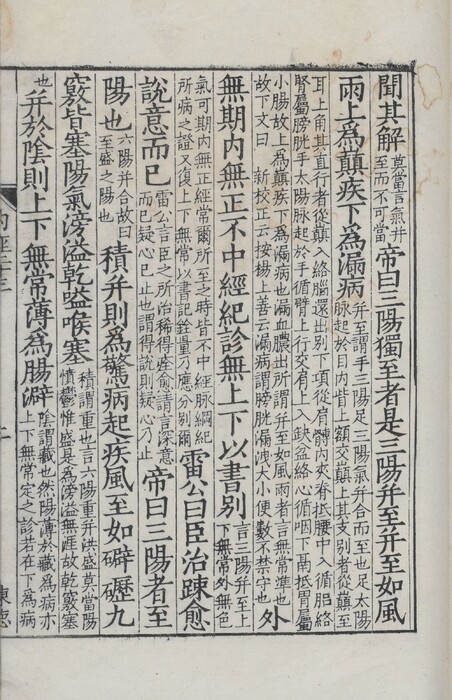 聞其解莫當言氣并至而不可當帝曰三陽獨至者是三陽并至并至如風
雨上爲顛疾下爲漏病并至謂手三陽足三陽氣并合而至也足太陽脉起於目内眥上額交巓上其支别者從巓至
耳上角其直行者從巓入絡腦還出别下項從肩髆内夾脊抵腰中入循膂絡腎屬膀胱手太陽脉起於手循臂上行交肩上入缺盆絡心循咽下鬲抵胃屬
小腸故上爲顛疾下爲漏病也漏血膿出所謂并至如風雨者言無常準也故下文曰 新校正云按楊上善云漏病謂膀胱漏洩大小便數不禁守也外
無期内無正不中經紀診無上下以書别言三陽并至上下無常外無色
氣可期内無正經常爾所至之時皆不中經脉綱紀所病之證又復上下無常以書記銓量乃應分别爾雷公曰臣治踈愈
說意而已雷公言臣之所治稀得痊愈請言深意而已疑心已止也謂得說則疑心乃止帝曰三陽者至
陽也六陽并合故曰至盛之陽也積并則爲驚病起疾風至如礔礰九
竅皆塞陽氣滂溢乾嗌喉塞積謂重也言六陽重并洪盛莫當陽憤鬱惟盛是爲滂溢無涯故乾竅塞
也并於陰則上下無常薄爲腸澼陰謂藏也然陽薄於藏爲病亦上下無常定之診若在下爲病